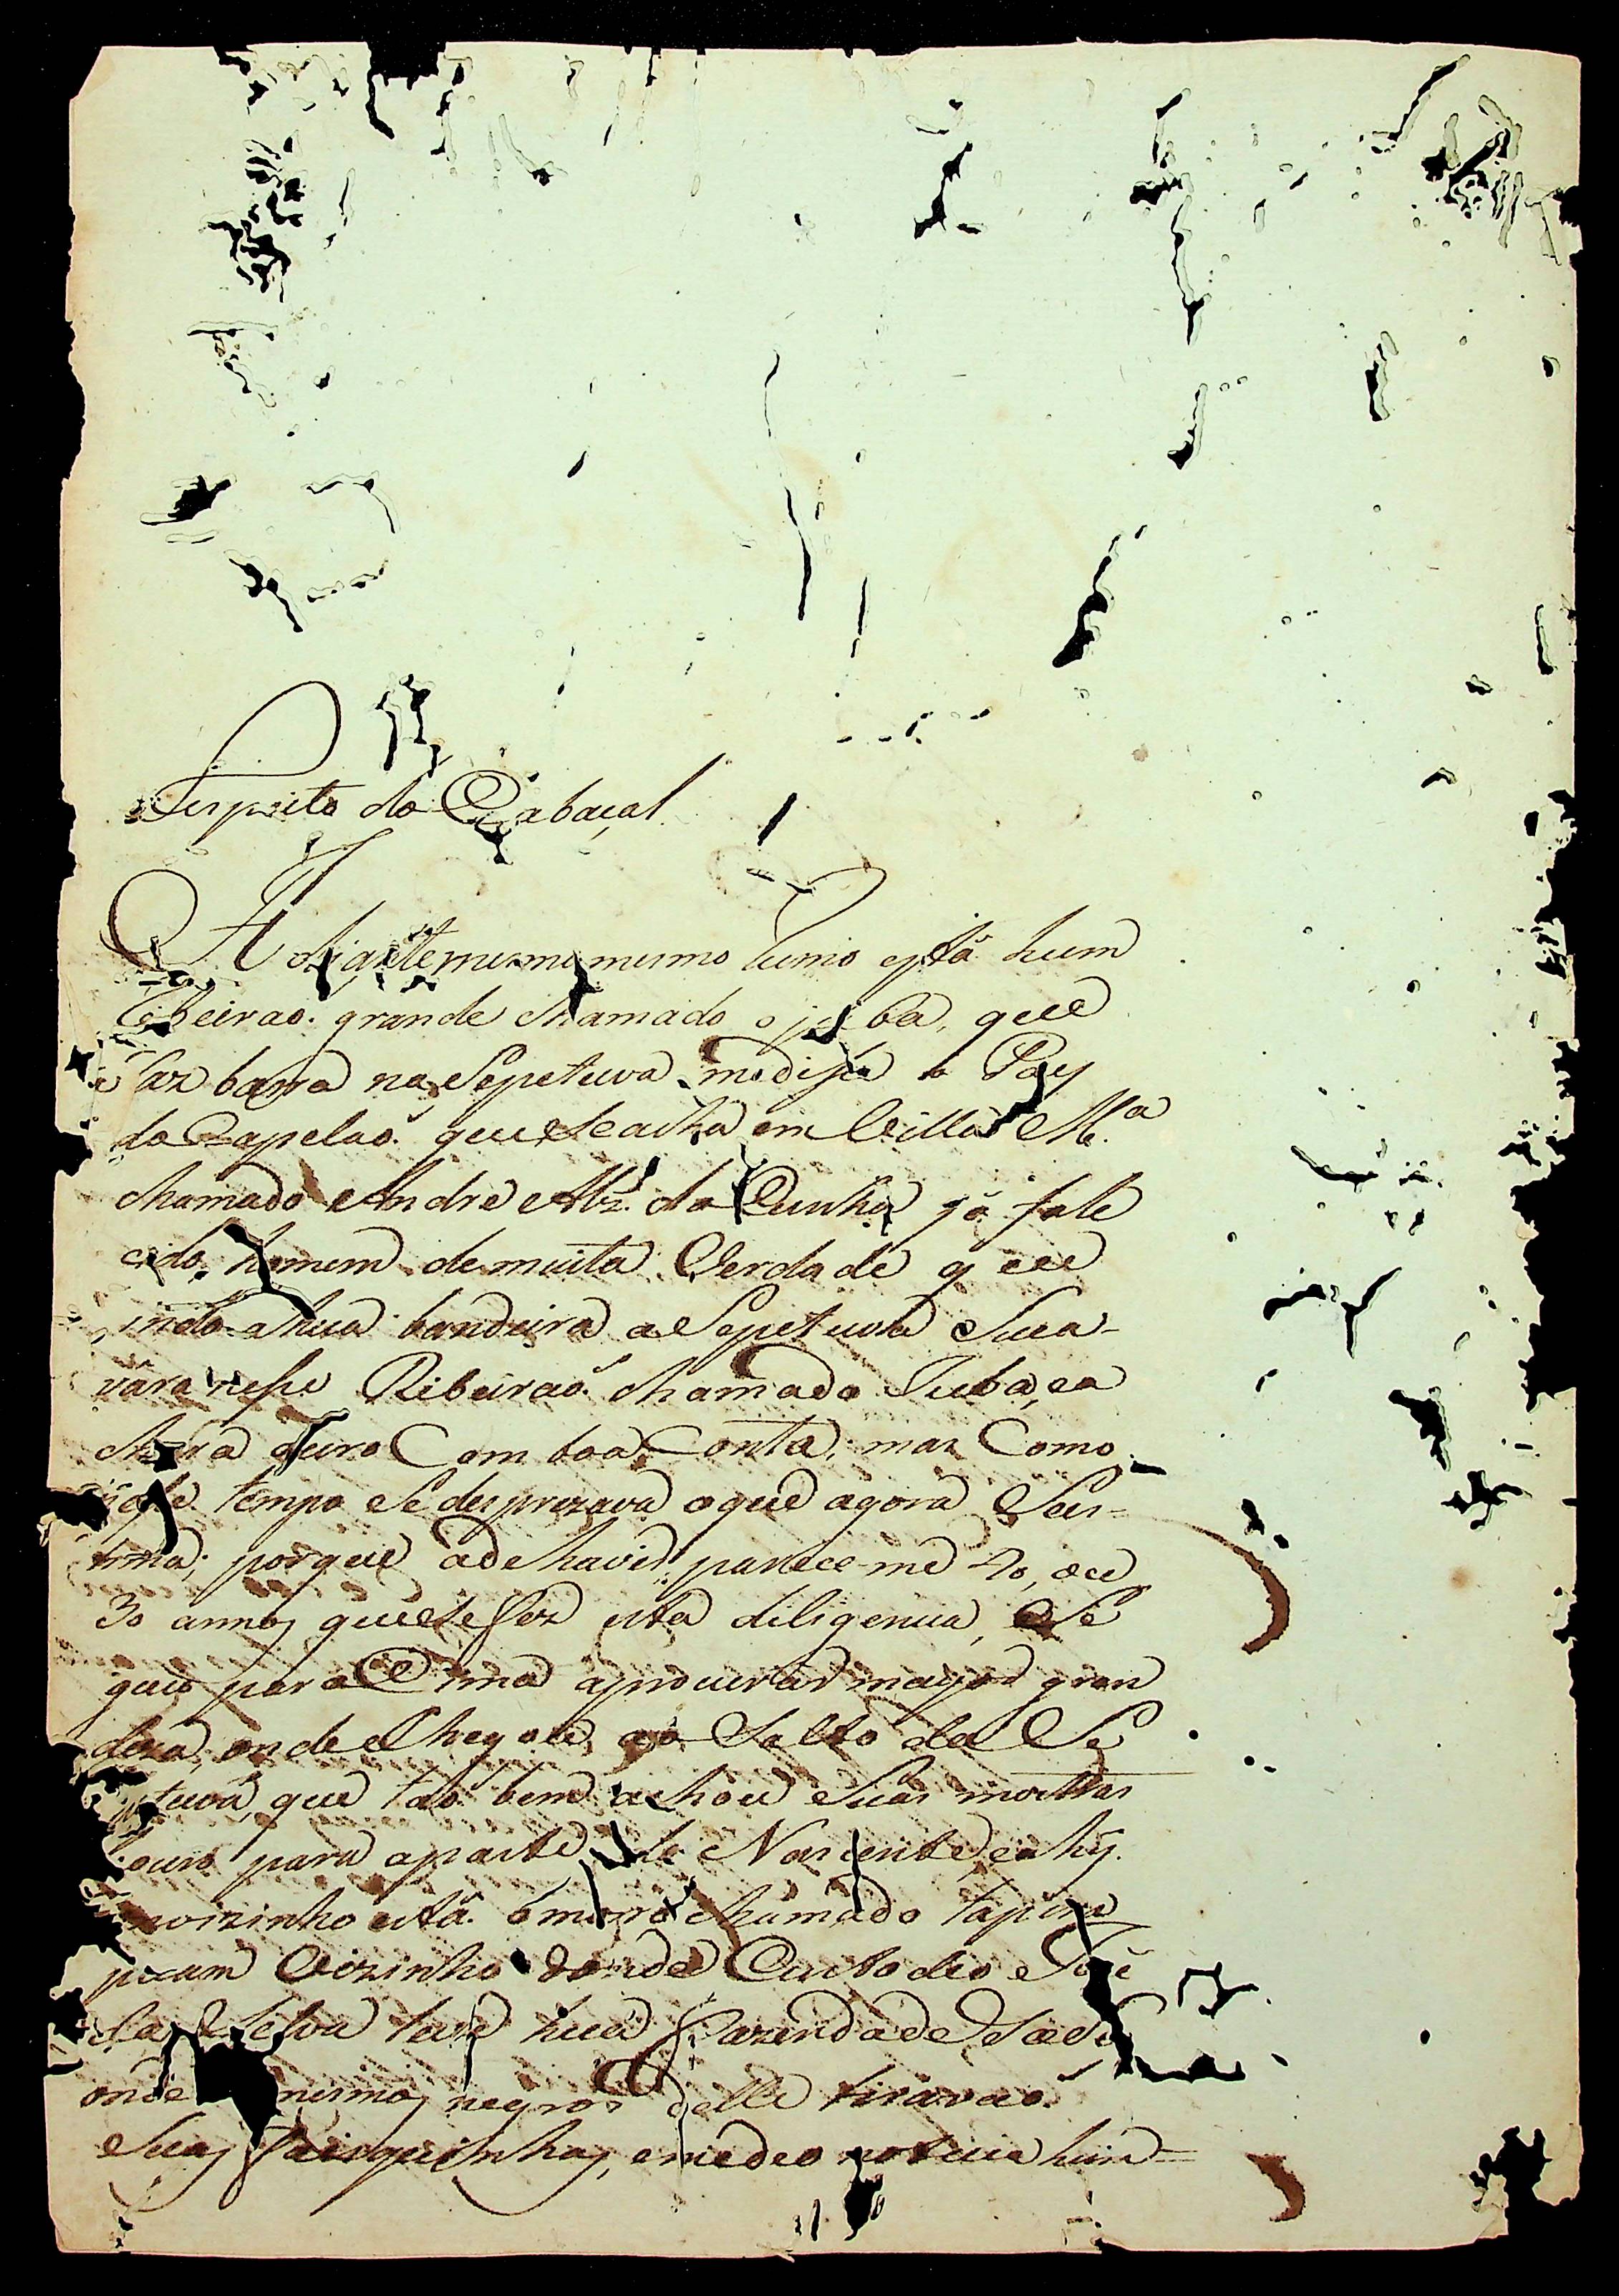 Respeito do Cabaçal
A diante no mesmo rumo está hum
Ribeirao. grande chamado o juba, que
faz barra na Sepetuva me disce o Pay
do Capelaõ. que se acha em Villa M.ª
chamado Andre Alz. da Cunha já fale
cido, homem de muita Verdade que
indo a hua bandeira a Sepetuva Suca-
vára neste Ribeiraõ. chamado Juba, ea
chara ouro Com boa Conta, mas Como
neste tempo Se desprezava oque agora Ses-
tima; porque ade haver parece-me 40, ou
30 annos que se fez esta diligencia, eSe
guio para Cima aprocurar mayor gran
deza, onde Chegou ao Salto da Se
petuva, que taõ bem achou Suas mostras
de ouro para aparte do Nascente, eahy.
vizinho está o morro chamado tapira
puam Vizinho donde Custodio José
da Silva teve hua Fazenda de Gado
onde mesmos negros delle tiravaõ.
Suas faisquinhas, emedeo noticia hum=